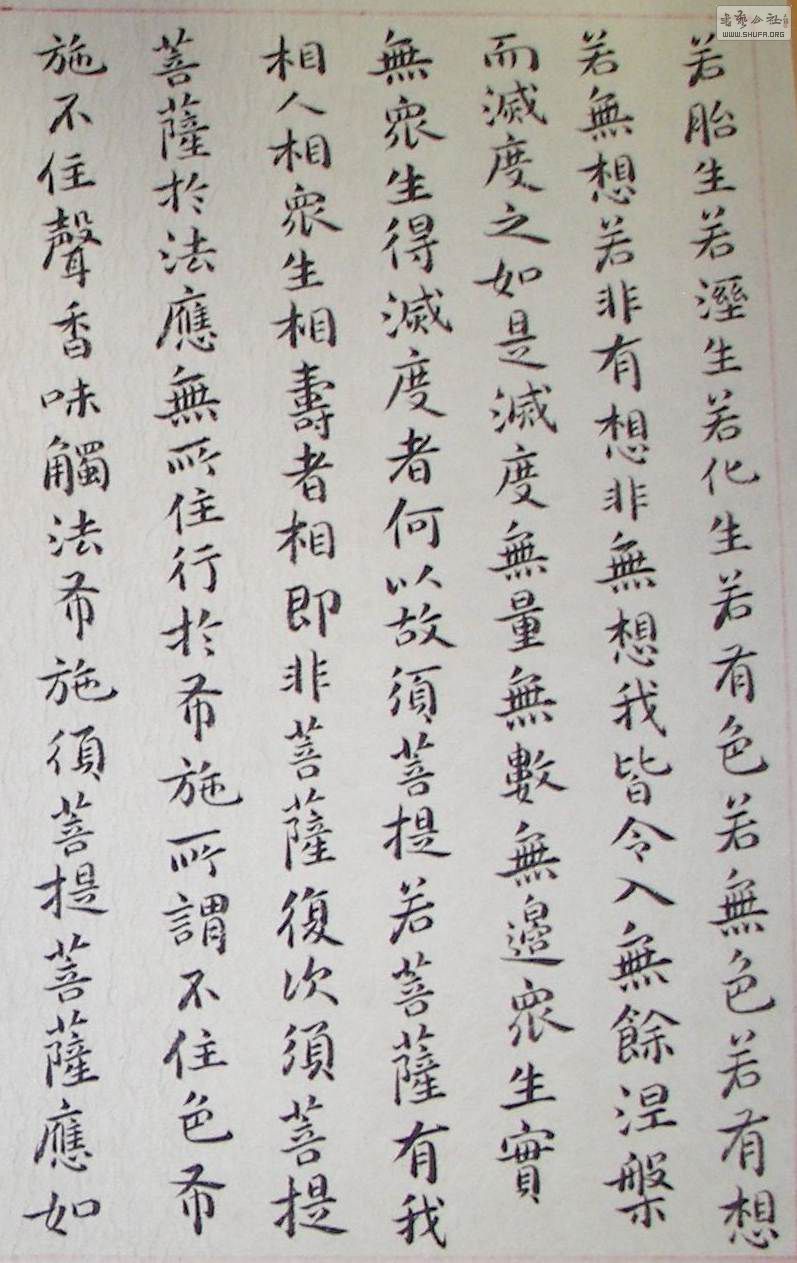 若胎生若溼生若化生若有色若無色若有想
若無想若非有想非無想我皆令入無餘涅槃
而滅度之如是滅度無量無數無邊眾生實
無眾生得滅度者何以故須菩提若菩薩有我
相人相眾生相壽者相即非菩薩復次須菩提
菩薩於法應無所住行於布施所謂不住色布
施不住聲香味觸法布施須菩提菩薩應如
書藝公社
WWW.SHUFA.ORG